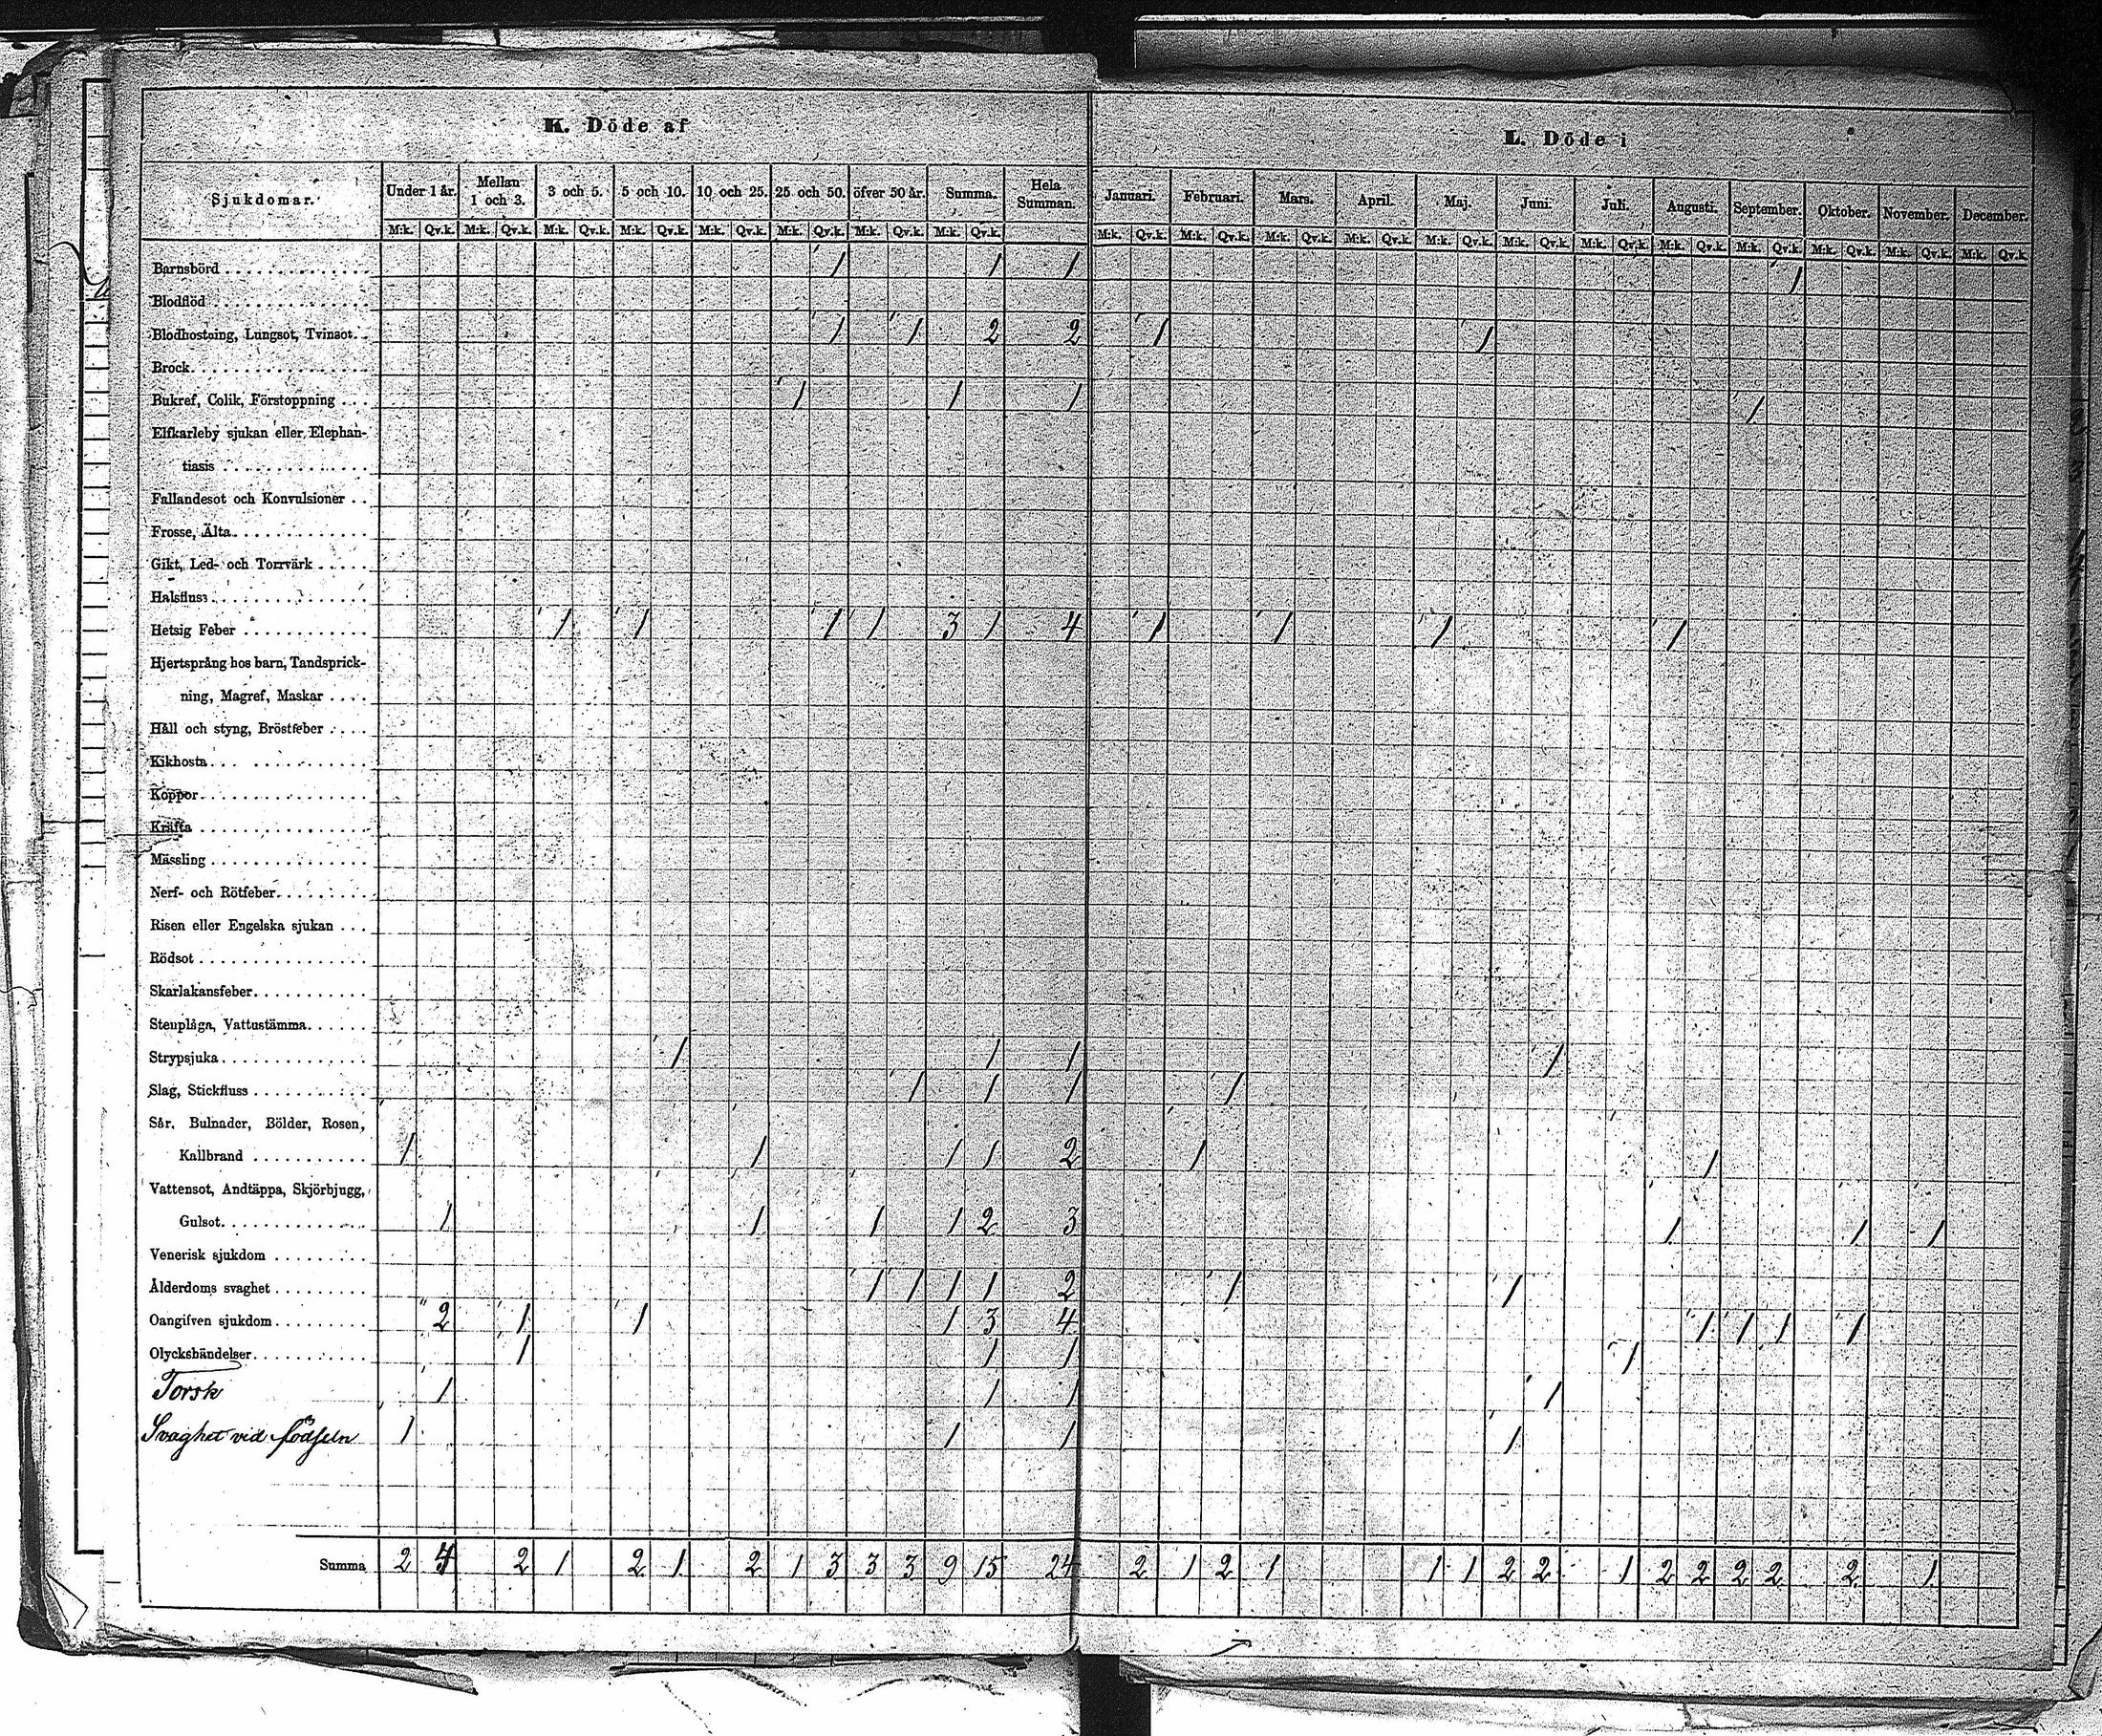 K. Döde af
L. Döde i
Sjukdomar. Under 1 år. Mellan 1 och 3. 3 och 5. 5 och 10. 10 och 25. 25 och 50. öfver 50 år. Summa. Hela Summan. Januari. Februari. Mars. April. Maj. Juni. Juli. Augusti. September. Oktober. November. December.
M:k. Qv.k. M:k. Qv.k. M:k. Qv.k. M:k. Qv.k. M:k. Qv.k. M:k. Qv.k. M:k. Qv.k. M:k. Qv.k. M:k. Qv.k. M:k. Qv.k. M:k. Qv.k. M:k. Qv.k. M:k. Qv.k. M:k. Qv.k. M:k. Qv.k. M:k. Qv.k. M:k. Qv.k. M:k. Qv.k. M:k. Qv.k. M:k. Qv.k.
Barnsbörd 1 1 1 1
Blodflöd
Blodhostning, Lungsot, Tvinsot 1 1 2 2 1 1
Brock
Bukref, Colik, Förstoppning 1 1 1 1
Elfkarleby sjukan eller Elephan-
tiasis
Fallandesot och Konvulsioner
Frosse, Älta
Gikt, Led- och Torrvärk
Halsfluss
Hetsig Feber 1 1 1 1 3 1 4 1 1 1 1
Hjertsprång hos barn, Tandsprick-
ning, Magref, Maskar
Håll och styng, Bröstfeber
Kikhosta
Koppor
Kräfta
Mässling
Nerf- och Rötfeber
Risen eller Engelska sjukan
Rödsot
Skarlakansfeber
Stenplåga, Vattustämma
Strypsjuka 1 1 1 1
Slag, Stickfluss 1 1 1 1
Sår, Bulnader, Bölder, Rosen,
Kallbrand 1 1 1 1 2 1 1
Vattensot, Andtäppa, Skjörbjugg,
Gulsot 1 1 1 1 2 3 1 1 1
Venerisk sjukdom
Ålderdoms svaghet 1 1 1 1 2 1 1
Oangifven sjukdom 2 1 1 1 3 4 1 1 1 1
Olyckshändelser 1 1 1 1
Torsk 1 1 1 1
Svaghet vid födseln 1 1 1 1
Summa 2 4 2 1 2 1 2 1 3 3 3 9 15 24 2 1 2 1 1 1 2 2 1 2 2 2 2 2 1